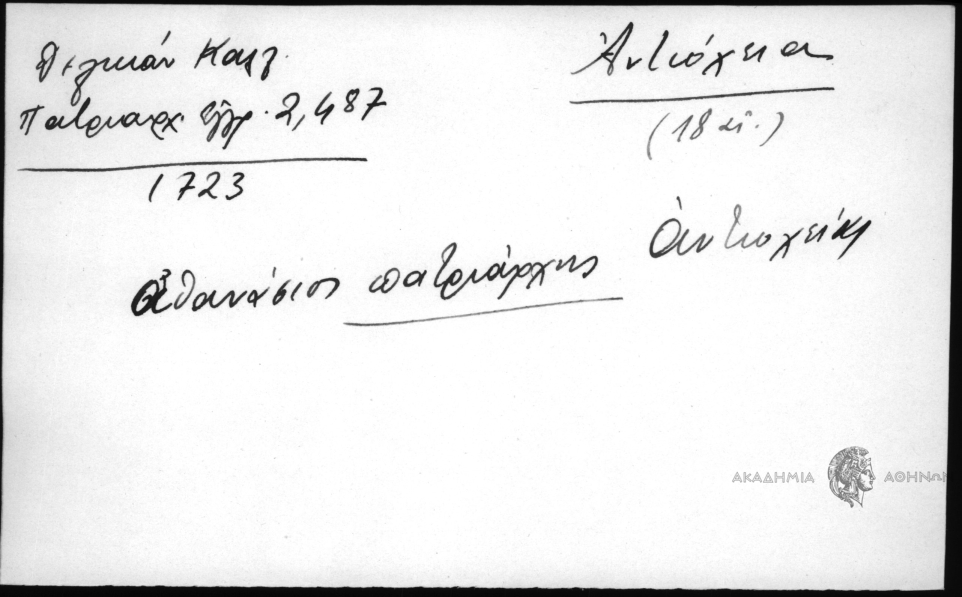 Δελικάν Καλλ.
Πατριαρχ. Ἔγγρ. 2,487
1723
Ἀντιόχεια
(18 αἰ.)
Ἀθανάσιος πατριάρχης Ἀντιοχείας
ΑΚΑΔΗΜΙΑ ΑΘΗΝΩΝ